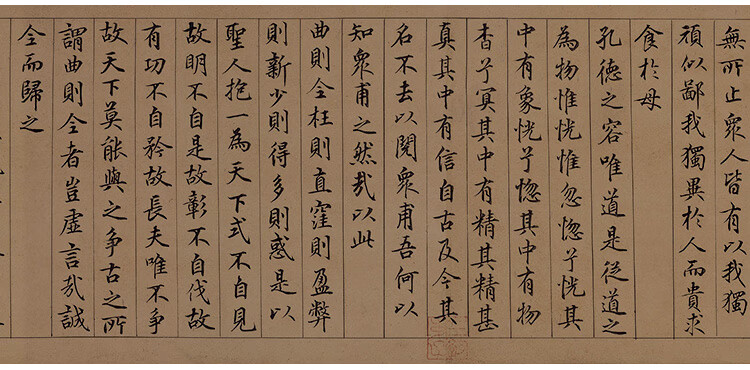 無所止衆人皆有以我獨
頑似鄙我獨異於人而貴求
食於母
孔德之容唯道是從道之
為物惟恍惟忽惚兮恍其
中有象恍兮惚其中有物
杳兮冥其中有精其精甚
真其中有信自古及今其
名不去以閱衆甫吾何以
知衆甫之然哉以此
曲則全枉則直窪則盈弊
則新少則得多則惑是以
聖人抱一為天下式不自見
故明不自是故彰不自伐故
有功不自矜故長夫唯不爭
故天下莫能與之争古之所
謂曲則全者豈虛言哉誠
全而歸之